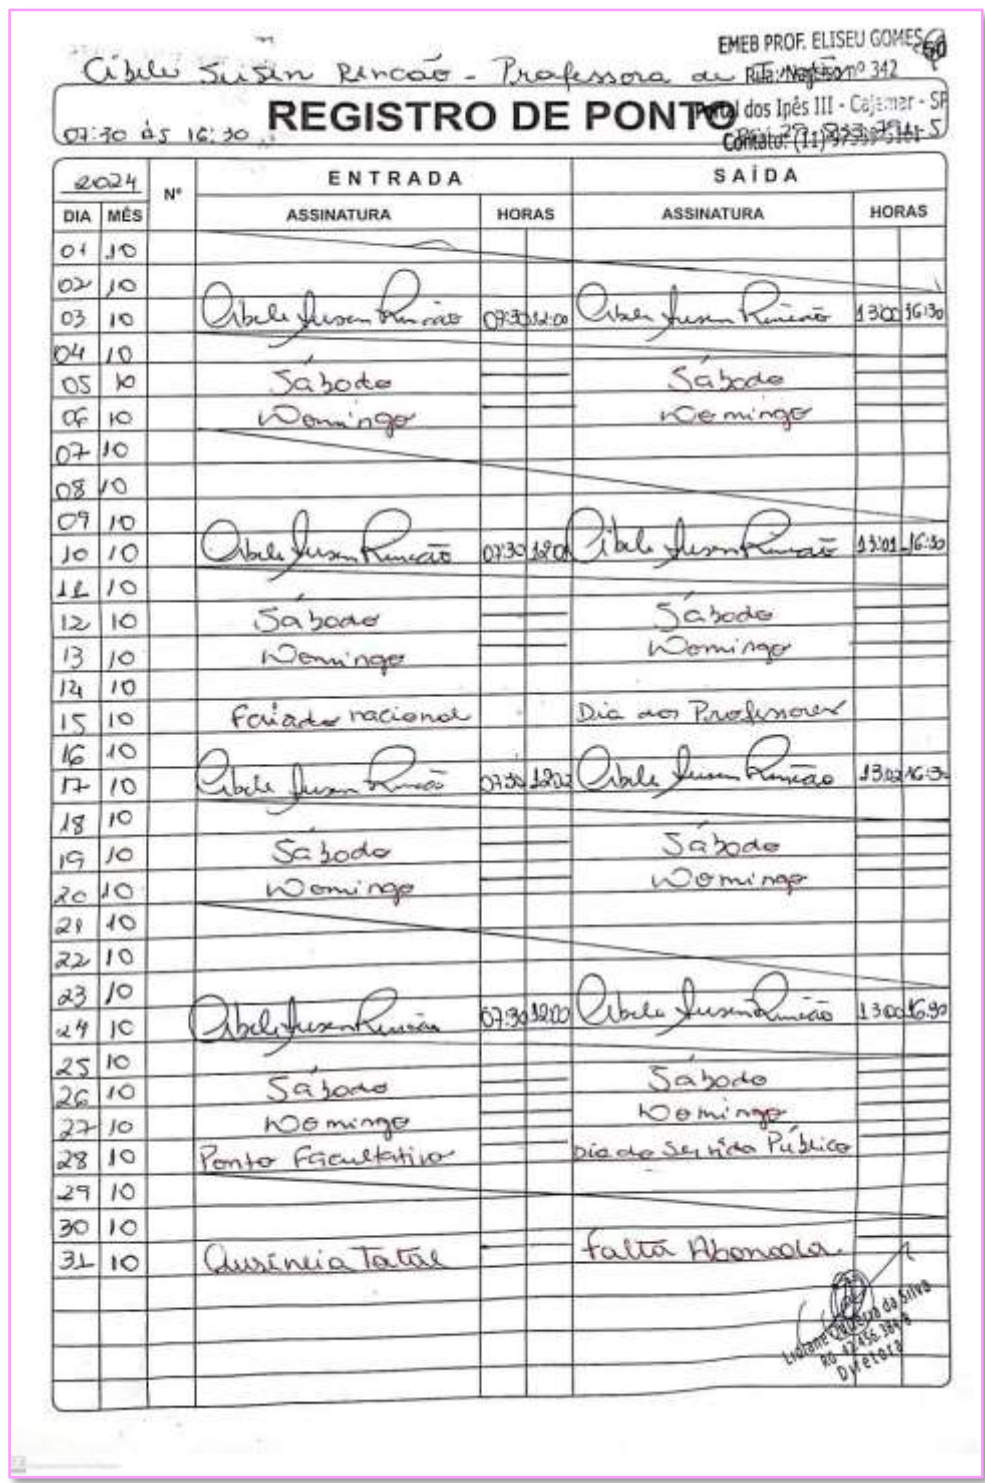 EMEB PROF. ELISEU GOMES
Cibele Susin Rincão - Professora de
nº 342
REGISTRO DE PONTO
dos Ipês III - Cajamar - SP
07:30 às 16:30
Contato: (11)
2024 Nº ENTRADA SAÍDA
DIA MÊS ASSINATURA HORAS ASSINATURA HORAS
01 10
02 10
03 10 Cibele Susin Rincão 07:30 12:00 Cibele Susin Rincão 13:00 16:30
04 10
05 10 Sábado Sábado
06 10 Domingo Domingo
07 10
08 10
09 10
10 10 Cibele Susin Rincão 07:30 Cibele Susin Rincão 13:01 16:30
11 10
12 10 Sábado Sábado
13 10 Domingo Domingo
14 10
15 10 Feriado nacional Dia dos Professores
16 10
17 10 Cibele Susin Rincão 07:30 12:02 Cibele Susin Rincão 13:02 16:30
18 10
19 10 Sábado Sábado
20 10 Domingo Domingo
21 10
22 10
23 10
24 10 Cibele Susin Rincão 07:30 12:00 Cibele Susin Rincão 13:00 16:30
25 10
26 10 Sábado Sábado
27 10 Domingo Domingo
28 10 Ponto Facultativo Dia do Servidor Público
29 10
30 10
31 10 Ausência Total Falta Abonada.
da Silva
RG
Diretora